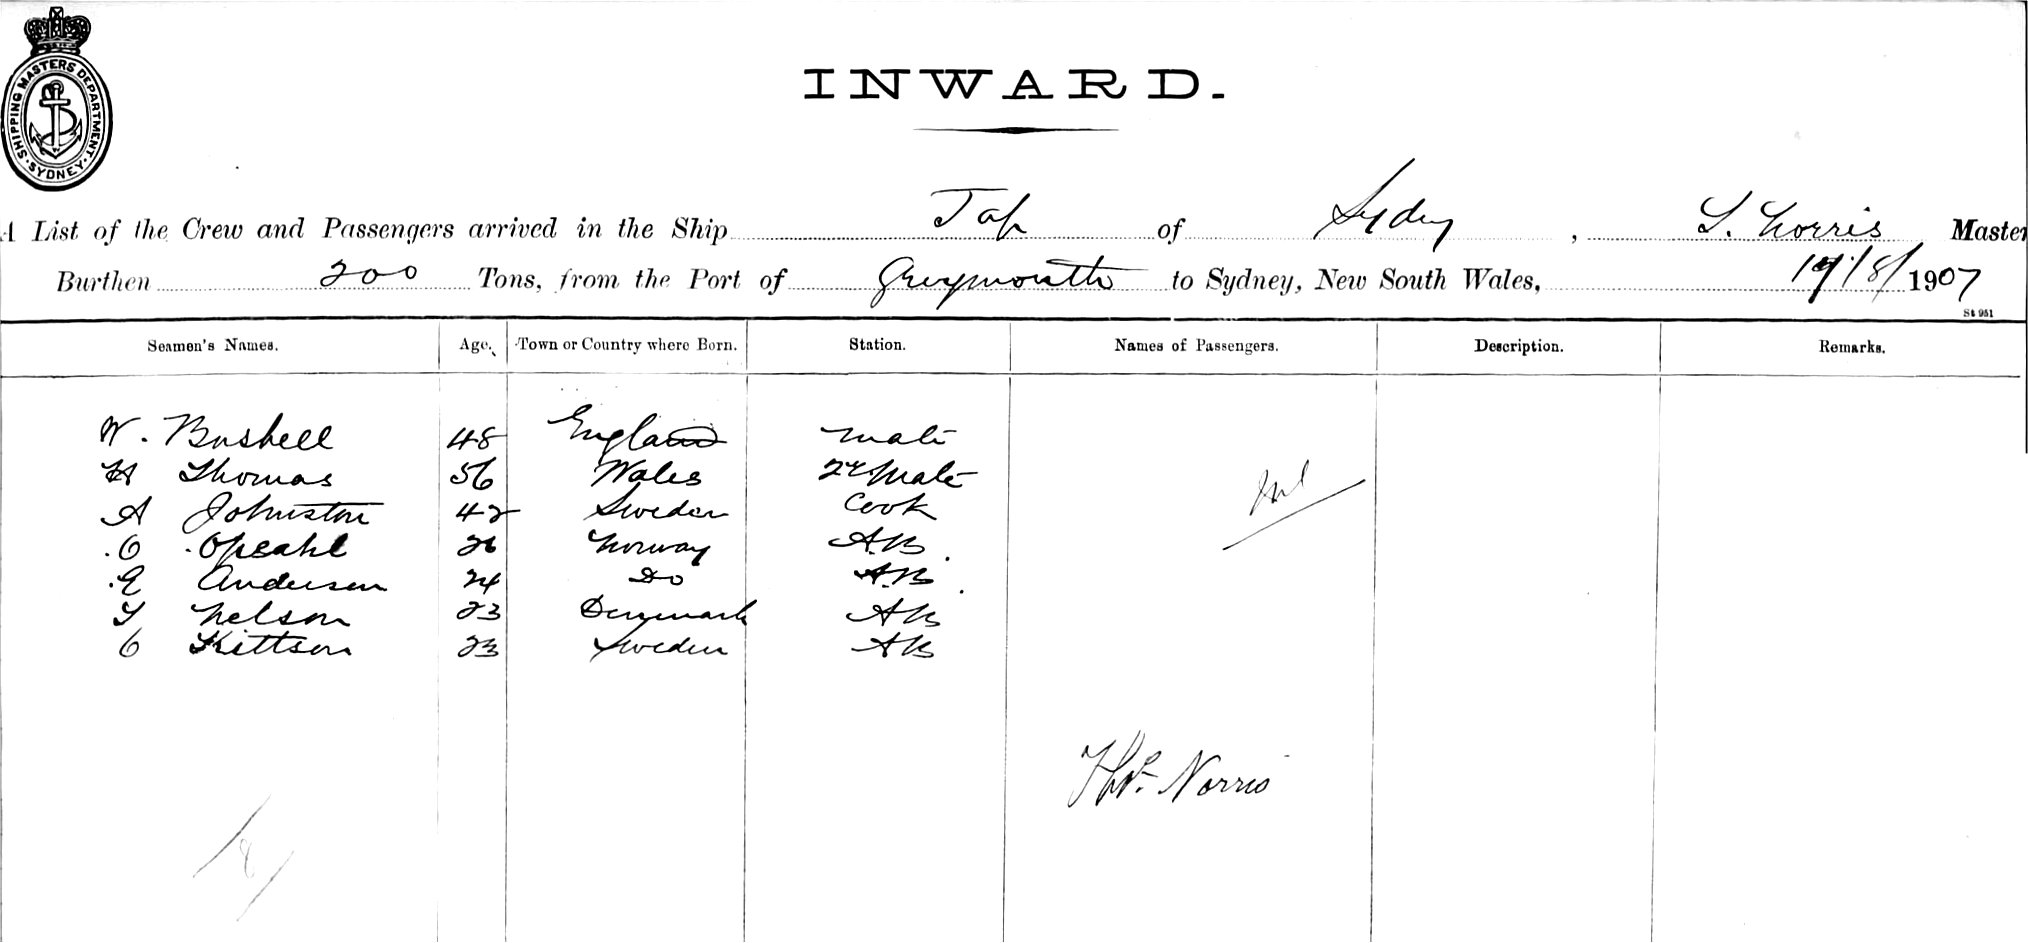 SHIPPING MASTERS DEPARTMENT. SYDNEY
INWARD.
A List of the Crew and Passengers arrived in the Ship Jap of Sydney, T. Norris Master
Burthen 200 Tons, from the Port of Greymouth to Sydney, New South Wales, 19/8/1907
St 951
Seamen's Names. Age. Town or Country where Born. Station. Names of Passengers. Description. Remarks.
W. Bushell 48 England Mate
H Thomas 56 Wales 2nd Mate
A Johnston 42 Sweden Cook
O 26 Norway A.B.
E Andersen 24 Do A.B.
T Nelson 23 Denmark AB
C Kittson 23 Sweden AB
Nil
Thos. Norris
8/